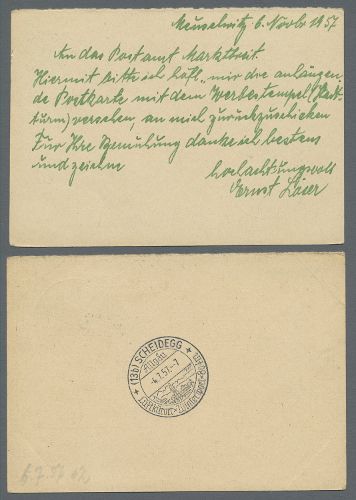 Meuselwitz 6. Novbr 1957
An das Postamt Marktbreit.
Hiermit bitte ich höfl., mir die anhängen
de Postkarte mit dem Werbestempel (
turm) versehen, an mich zurückzuschicken
Für Ihre Bemühung danke ich bestens
und zeichne hochachtungsvoll
Ernst
(13b) SCHEIDEGG
Allgäu
-4.7.57.-7
Luftkurort